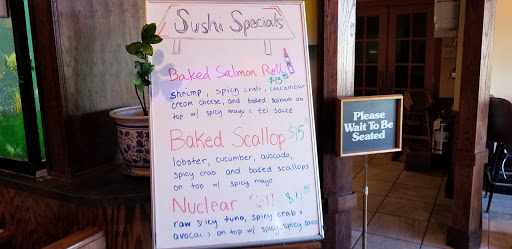 Sushi Specials
Baked Salmon Roll
shrimp, spicy crab, cucumber
cream cheese, and baked salmon on
top w/ spicy mayo & eel sauce
Baked Scallop $15
lobster, cucumber, avocado,
spicy crab and baked scallops
on top w/ spicy mayo
Nuclear Roll
raw spicy tuna, spicy crab +
on top w/ spicy, spicy sauce
Please
Wait To Be
Seated